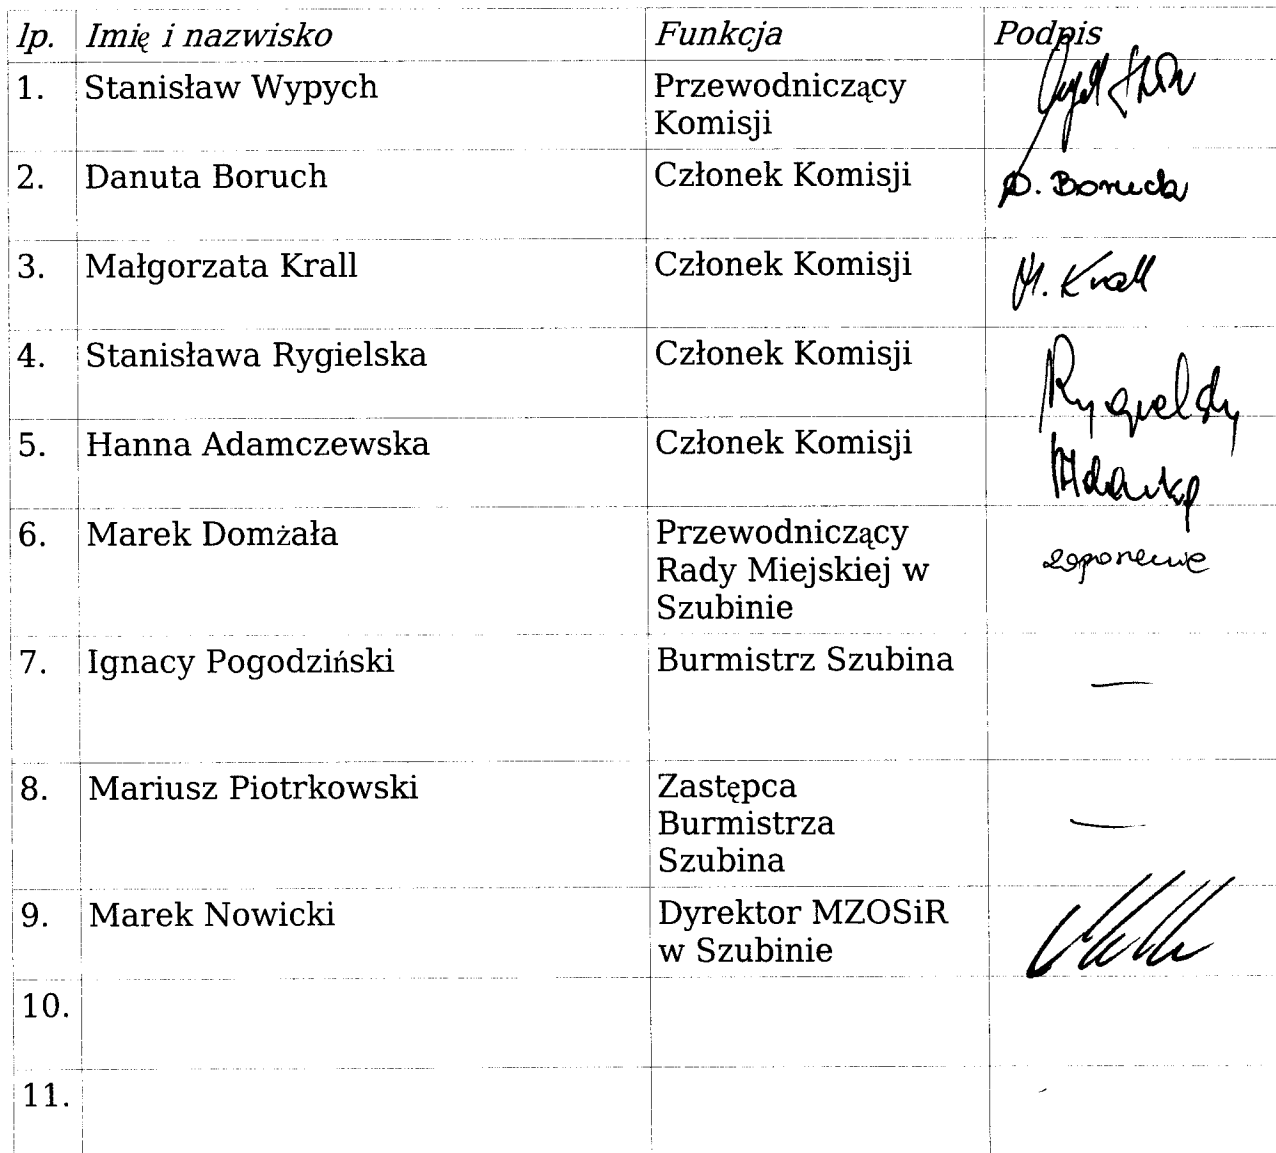 lp. Imię i nazwisko Funkcja Podpis
1. Stanisław Wypych Przewodniczący
Komisji
2. Danuta Boruch Członek Komisji
3. Małgorzata Krall Członek Komisji M. Krall
4. Stanisława Rygielska Członek Komisji
5. Hanna Adamczewska Członek Komisji
6. Marek Domżała Przewodniczący
Rady Miejskiej w
Szubinie
7. Ignacy Pogodziński Burmistrz Szubina —
8. Mariusz Piotrkowski Zastępca —
Burmistrza
Szubina
9. Marek Nowicki Dyrektor MZOSiR
w Szubinie
10.
11.